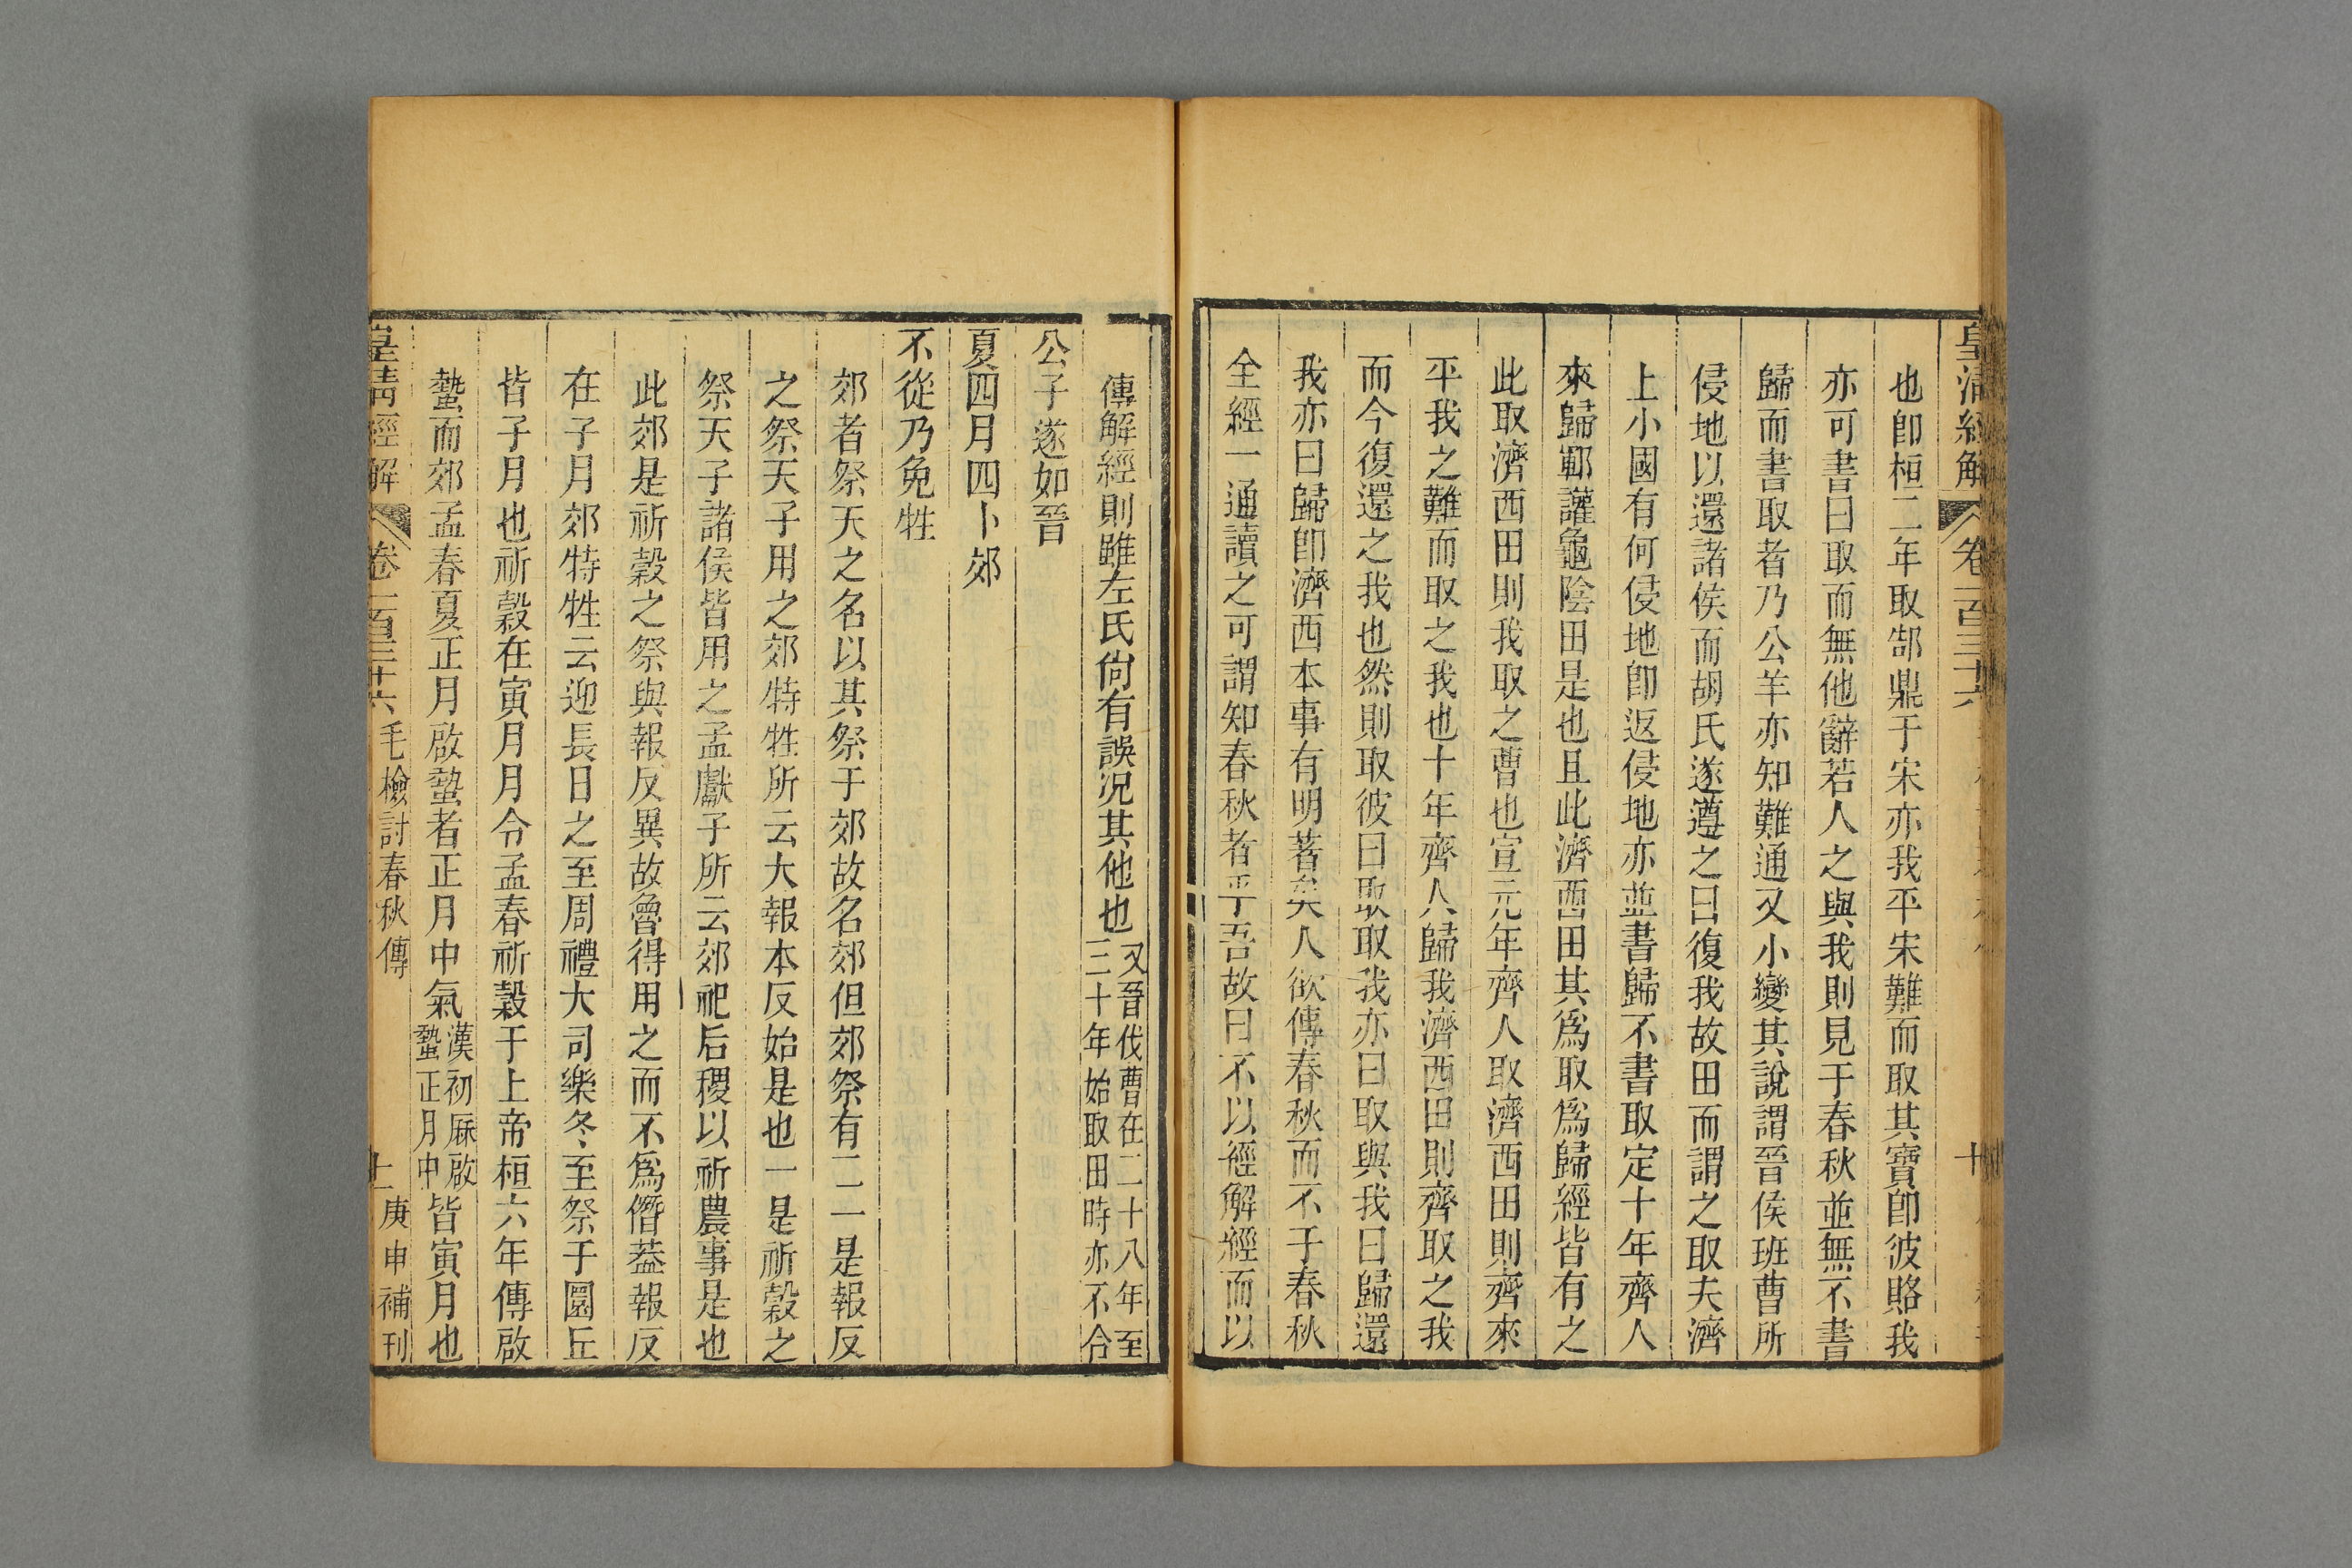 皇清經解 卷一百三十六 十
也卽桓二年取郜鼎于宋亦我平宋難而取其寶卽彼賂我
亦可書曰取而無他辭若人之與我則見于春秋並無不書
歸而書取者乃公羊亦知難通又小變其說謂晉侯班曹所
侵地以還諸侯而胡氏遂遵之曰復我故田而謂之取夫濟
上小國有何侵地卽返侵地亦並書歸不書取定十年齊人
來歸鄆讙龜陰田是也且此濟西田其爲取爲歸經皆有之
此取濟西田則我取之曹也宣元年齊人取濟西田則齊來
平我之難而取之我也十年齊人歸我濟西田則齊取之我
而今復還之我也然則取彼曰取取我亦曰取與我曰歸還
我亦曰歸卽濟西本事有明著矣人欲傳春秋而不于春秋
全經一通讀之可謂知春秋者乎吾故曰不以經解經而以
傳解經則雖左氏尙有誤況其他也又晉伐曹在二十八年至
三十年始取田時亦不合
公子遂如晉
夏四月四卜郊
不從乃免牲
郊者祭天之名以其祭于郊故名郊但郊祭有二一是報反
之祭天子用之郊特牲所云大報本反始是也一是祈穀之
祭天子諸侯皆用之孟獻子所云郊祀后稷以祈農事是也
此郊是祈穀之祭與報反異故魯得用之而不爲僭蓋報反
在子月郊特牲云迎長日之至周禮大司樂冬至祭于圜丘
皆子月也祈穀在寅月月令孟春祈穀于上帝桓六年傳啟
蟄而郊孟春夏正月啟蟄者正月中氣漢初厤啟
蟄正月中皆寅月也
皇清經解 卷一百三十六 毛檢討春秋傳 十一 庚申補刊